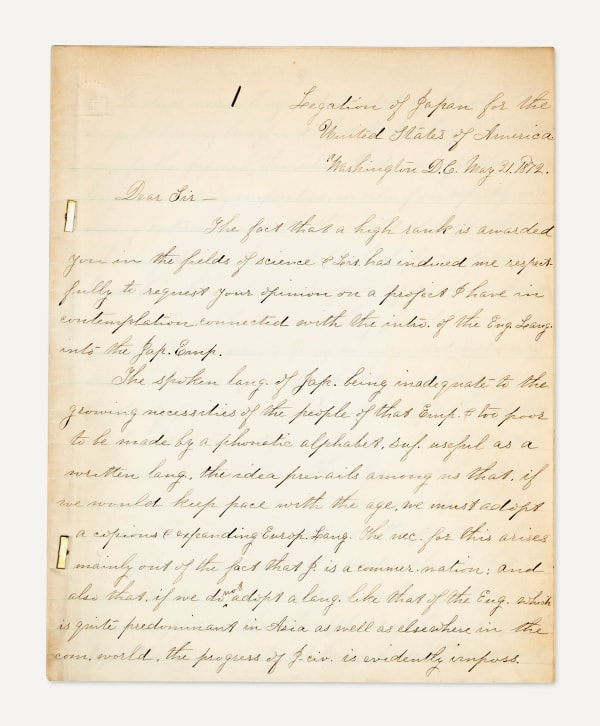 Legation of Japan for the
United States of America
Washington D.C. May 21. 1872.
Dear Sir —
The fact that a high rank is awarded
you in the fields of science & has induced me respect-
fully to request your opinion on a project I have in
contemplation connected with the intro. of the Eng. Lang.
into the Jap. Emp.
The spoken lang. of Jap. being inadequate to the
growing necessities of the people of that Emp. & too poor
to be made by a phonetic alphabet, suf. useful as a
written lang, the idea prevails among us that, if
we would keep pace with the age, we must adopt
a copious & expanding Europ. Lang. The nec. for this arises
mainly out of the fact that J. is a commer. nation; and
also that, if we do not adopt a lang. like that of the Eng. which
is quite predominant in Asia as well as elsewhere in the
com. world, the progress of J. civ. is evidently imposs.